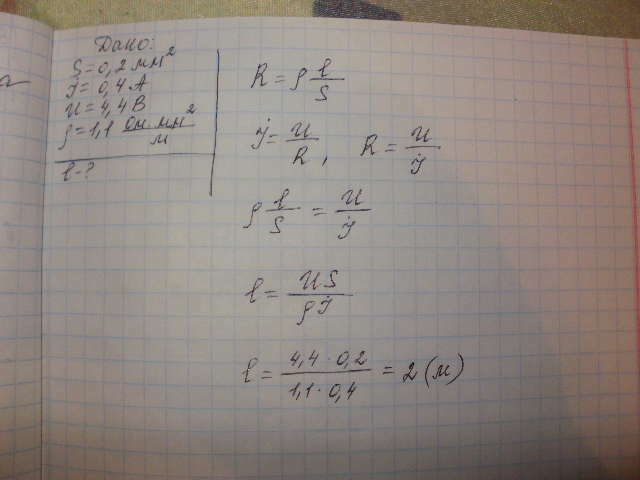 Дано:
S = 0,2 мм²
I = 0,4 А
U = 4,4 В
ρ = 1,1 Ом·мм²/м
l - ?
R = ρ l/S
I = U/R, R = U/I
ρ l/S = U/I
l = US/ρI
l = 4,4 · 0,2 / 1,1 · 0,4 = 2 (м)